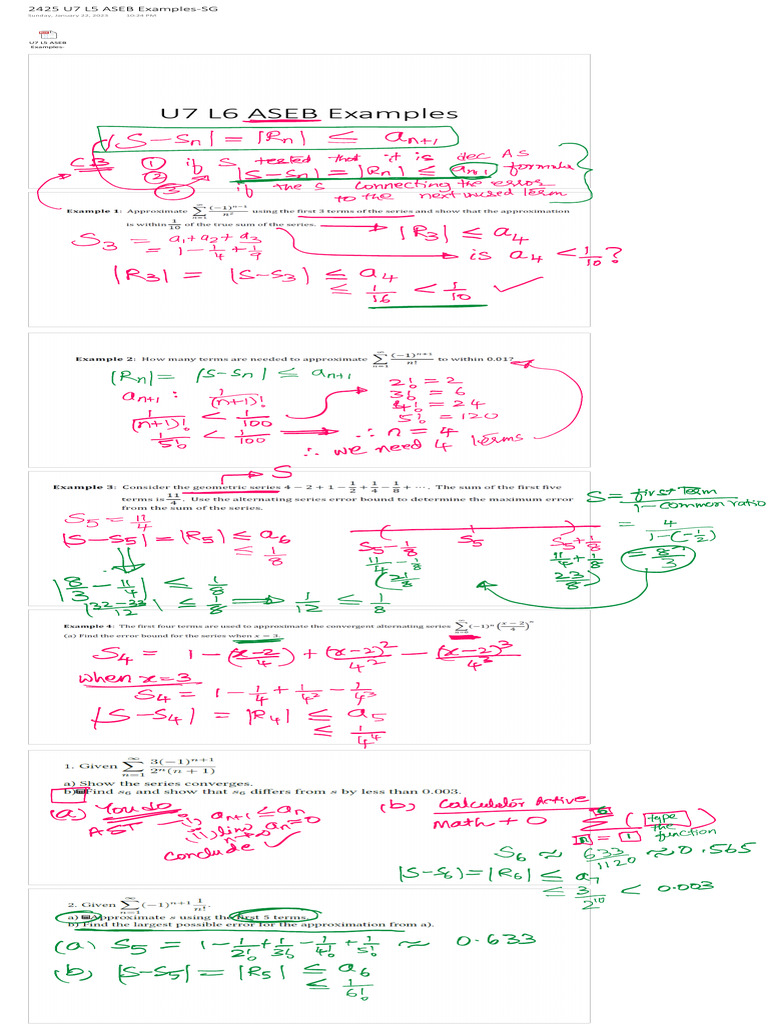 2425 U7 L5 ASEB Examples-SG
Sunday, January 22, 2023 10:24 PM
U7 L5 ASEB
Examples-
U7 L6 ASEB Examples
|S-Sn| = |Rn| ≤ an+1
CB ① if S tested that it is dec AS
② |S-Sn| = |Rn| ≤ an+1 formula
③ if the S connecting the error
to the next unused term
Example 1: Approximate ∑_{n=1}^{∞} (-1)^{n-1}/n² using the first 3 terms of the series and show that the approximation
is within 1/10 of the true sum of the series. → |R3| ≤ a4
S3 = a1+a2+a3
= 1 - 1/4 + 1/9
is a4 < 1/10?
|R3| = |S-S3| ≤ a4
≤ 1/16 < 1/10 ✓
Example 2: How many terms are needed to approximate ∑_{n=1}^{∞} (-1)^{n+1}/n! to within 0.01?
|Rn| = |S-Sn| ≤ an+1
an+1 : 1/(n+1)!
1/(n+1)! < 1/100
1/5! < 1/100 ⟹ ∴ n = 4
2! = 2
3! = 6
4! = 24
5! = 120
∴ we need 4 terms
→ S
Example 3: Consider the geometric series 4 − 2 + 1 − 1/2 + 1/4 − 1/8 + ⋯. The sum of the first five
terms is 11/4. Use the alternating series error bound to determine the maximum error
from the sum of the series.
S = first term/1-common ratio
= 4/1-(-1/2)
= 8/3
S5 = 11/4
|S-S5| = |R5| ≤ a6
≤ 1/8
S5 - 1/8 S5 S5 + 1/8
11/4 - 1/8 11/4 + 1/8
(21/8 23/8)
|8/3 - 11/4| ≤ 1/8
|32-33/12| ≤ 1/8 ⟹ 1/12 ≤ 1/8
Example 4: The first four terms are used to approximate the convergent alternating series ∑_{n=0}^{∞} (-1)^n ((x-2)/4)^n
(a) Find the error bound for the series when x = 3.
S4 = 1 - (x-2/4) + (x-2)²/4² - (x-2)³/4³
when x=3
S4 = 1 - 1/4 + 1/4² - 1/4³
|S-S4| = |R4| ≤ a5
≤ 1/4⁴
1. Given ∑_{n=1}^{∞} 3(-1)^{n+1}/2^n(n+1)
a) Show the series converges.
b) Find s6 and show that s6 differs from s by less than 0.003.
(a) You do
AST i, an+1 ≤ an
ii, lim n→∞ an = 0
conclude ✓
(b) Calculator Active
Math + 0 ∑_{n=1}^{6} (type the function)
S6 ≈ 633/1120 ≈ 0.565
|S-S6| = |R6| ≤ a7
≤ 3/2¹⁰ < 0.003
2. Given ∑_{n=1}^{∞} (-1)^{n+1} 1/n!
a) Approximate s using the first 5 terms.
b) Find the largest possible error for the approximation from a).
(a) S5 = 1 - 1/2! + 1/3! - 1/4! + 1/5! ≈ 0.633
(b) |S-S5| = |R5| ≤ a6
≤ 1/6!